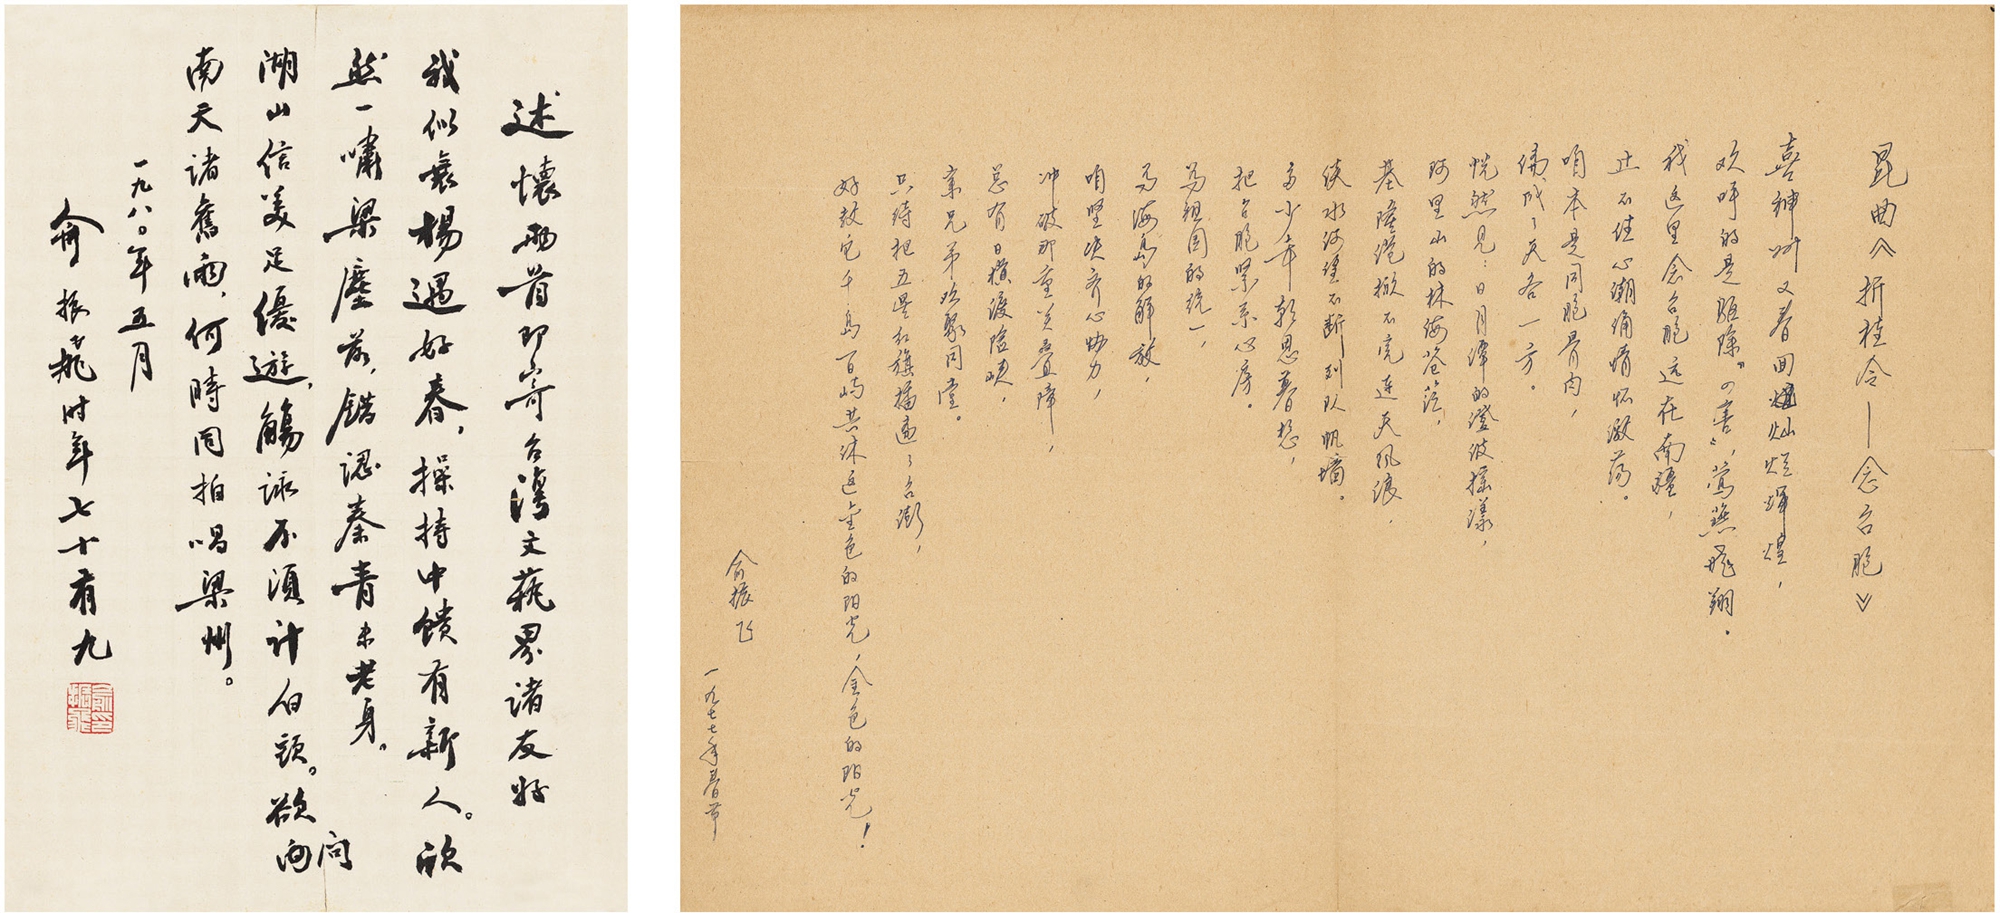 述懷兩首即寄台灣文藝界諸友好
我似衰楊遇好春,操持中饋有新人。欣
然一嘯梁塵落,錯認秦青未老身。
湖山信美足優遊,觴詠不須計白頭。欲向問
南天諸舊雨,何時同拍唱梁州。
一九八〇年五月
俞振飛时年七十有九
昆曲《折桂令——念台胞》
喜神州又春回灿烂辉煌,
欢呼的是驱除“四害”,莺燕飞翔。
我这里念台胞远在南疆,
止不住心潮涌情怀激荡。
咱本是同胞骨肉,
偏、成了天各一方。
恍然见:日月潭的澄波摇漾,
阿里山的林海苍茫,
基隆港掀不完连天风浪,
淡水河望不断列队帆墙。
多少年朝思暮想,
把台胞紧系心房。
为祖国的统一,
为海岛的解放,
咱坚决齐心协力,
冲破那重关叠障,
总有日横渡险峡,
亲兄弟欢聚同堂。
只待把五星红旗插遍了台澎,
好教它千岛百屿共沐这金色的阳光,金色的阳光!
俞振飞
一九七七年春节